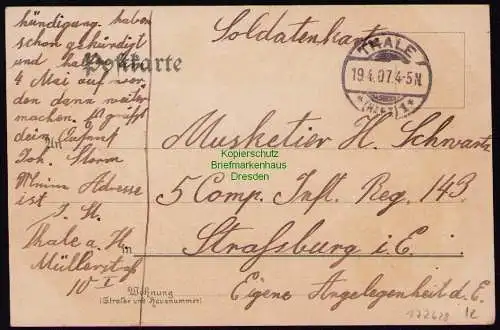 Soldatenkarte
kündigung. haben
schon gekündigt
und
4 Mai auf
den dann weiter
machen. grüßt
dein
Joh. Storm
Meine Adresse
ist
J. St.
Thale a. H.
Müllerstr.
10 I
Postkarte
THALE
19.4.07.4-5N
*(HARZ)1*
An
Musketier H. Schwartz
5 Comp. Inft. Reg. 143
in
Strassburg i. E.
Eigene Angelegenheit d. E.
Wohnung
(Straße und Hausnummer)
Kopierschutz
Briefmarkenhaus
Dresden